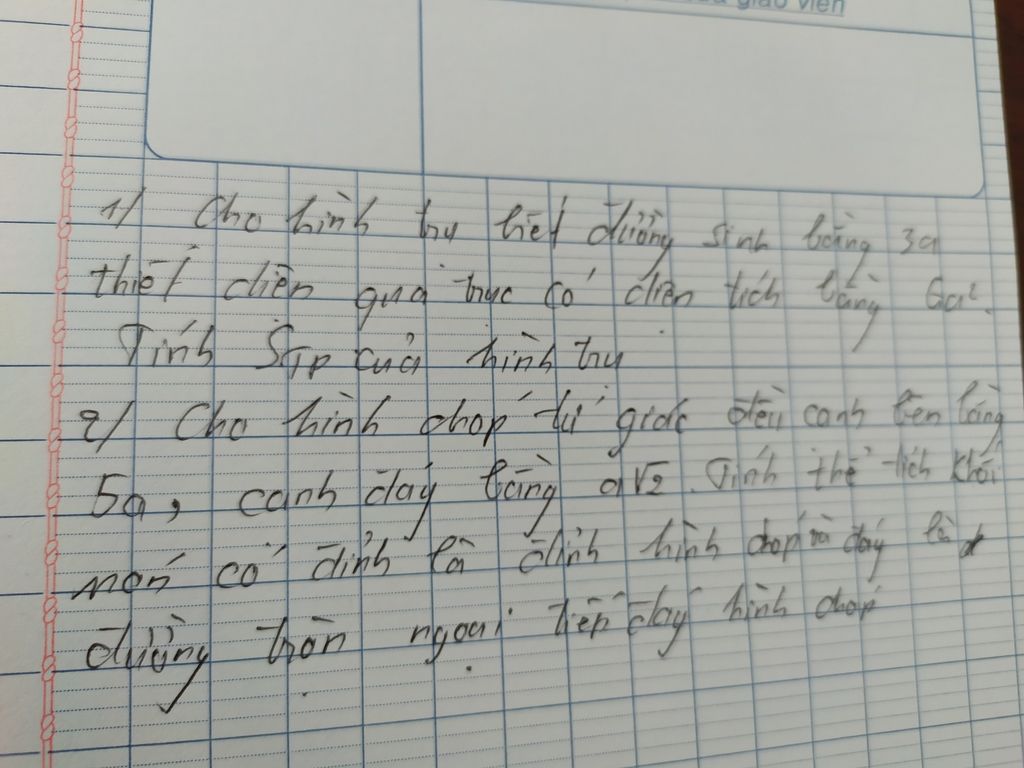 giáo viên
1/ Cho hình trụ biết đường sinh bằng 3a
thiết diện qua trục có diện tích bằng 6a².
Tính STP của hình trụ
2/ Cho hình chóp tứ giác đều cạnh bên bằng
5a, cạnh đáy bằng a√2. Tính thể tích khối
nón có đỉnh là đỉnh hình chóp và đáy là
đường tròn ngoại tiếp đáy hình chóp